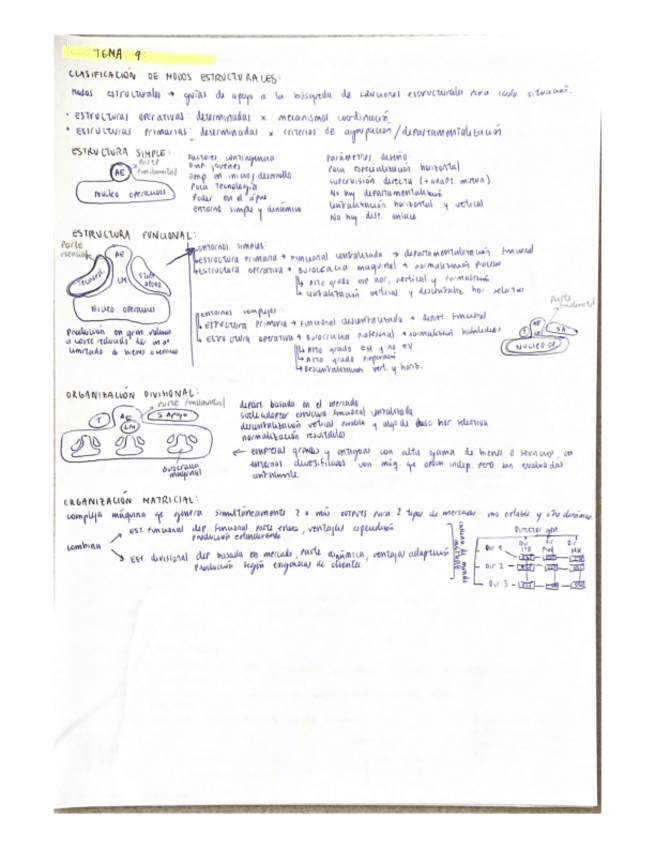 TEMA 9:
CLASIFICACIÓN DE MODOS ESTRUCTURALES:
Modos estructurales → guías de apoyo a la búsqueda de soluciones estructurales para cada situación.
• estructuras operativas: determinadas x mecanismos coordinación
• estructuras primarias: determinadas x criterios de agrupación/departamentalización
ESTRUCTURA SIMPLE:
Parte fundamental
AE
Núcleo operaciones
Factores contingencia
emp jóvenes
emp en inicios desarrollo
Poca tecnología
Poder en el ápice
Entorno simple y dinámico
Parámetros diseño:
Poca especialización horizontal
supervisión directa (+adapt mutua)
No hay departamentalización
Centralización horizontal y vertical
No hay disp. enlace
ESTRUCTURA FUNCIONAL:
Parte esencial
AE
LM
Staff apoyo
Núcleo operaciones
Producción en gran volumen
a coste reducido de un nº
limitado de bienes o servicios
Entornos simples:
Estructura primaria → Funcional centralizado → departamentalización funcional
Estructura operativa → Burocracia maquinal → normalización procesos
Alto grado esp hor, vertical y formalización
centralización vertical y descentraliz hor selectiva
Entornos complejos:
ESTRUCTURA Primaria → Funcional descentralizado → depart. funcional
Estructura operativa → Burocracia profesional → normalización habilidades
Alto grado EH y no EV
Alto grado preparación
Descentralización vert. y horiz.
Parte fundamental
T
AE
SA
NÚCLEO OP
ORGANIZACIÓN DIVISIONAL:
Parte fundamental
T
AE
LM
S Apoyo
Burocracia maquinal
depart. basado en el mercado
suele adoptar estructura funcional centralizada
descentralización vertical
normalización resultados
← empresas grandes y antiguas con alta gama de bienes o servicios, en
entornos diversificados con máq. qe operan indep. pero son evaluadas
centralmente.
ORGANIZACIÓN MATRICIAL:
compleja máquina qe genera simultáneamente 2 o más outputs para 2 tipos de mercados: uno estable y otro dinámico
combina
Est. Funcional dep. funcional parte estable, ventajas especialización
producción estandarizada
Est. divisional dep basada en mercado, parte dinámica, ventajas adaptación
Producción según exigencias de clientes
Director gral
Dir 1
Dir 2
Dir 3